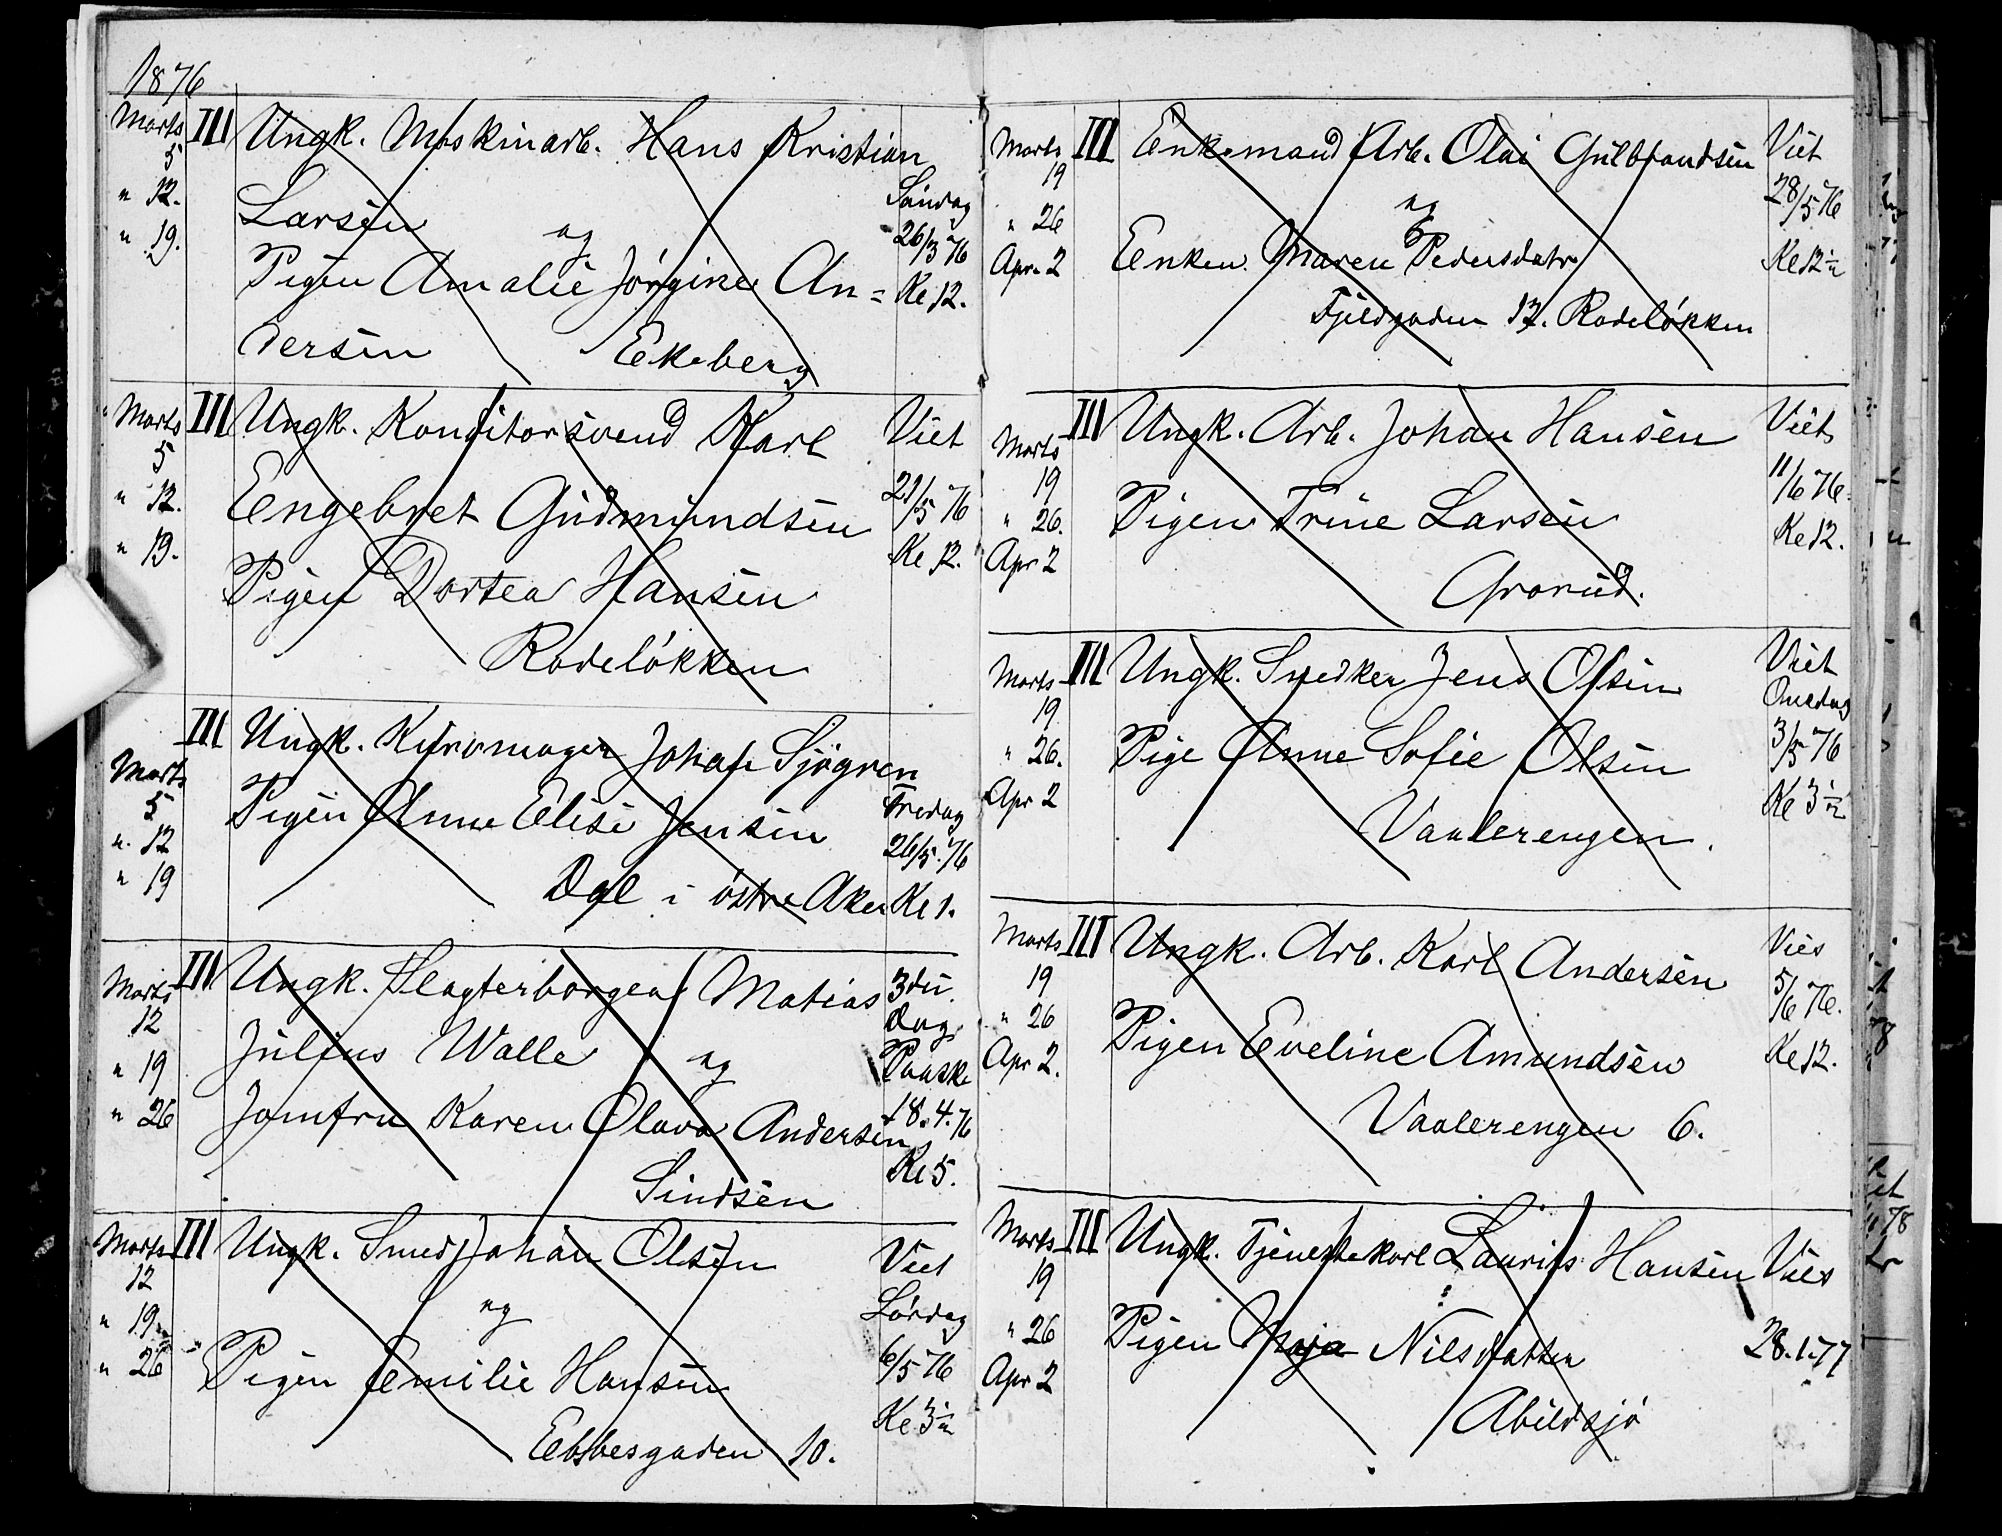 1876
Marts III Ungk. Maskinarb. Hans Kristian
5
" 12. Larsen Söndag
og 26/3 76
" 19. Pigen Amalie Jörgine An= Kl 12.
dersen Ekeberg
Marts III Ungk. Konditorsvend Karl Viet
5
" 12. Engebret Gudmundsen 21/5 76
" 19. Kl 12.
Pigen Dortea Hansen
Rodelökken
III Ungk. Johan Sjögren
Marts
5 Pigen Anne Elise Jensen Fredag
" 12 26/5 76
" 19 i östre Aker Kl 1.
Marts III Ungk. Matias 3die
12 Dag
" 19 Julius Walle og Paaske
" 26 Jomfru Karen Olava Andersen 18.4.76
Kl 5.
Sindsen
Marts III Ungk. Smed Johan Olsen Viet
12
og Lördag
" 19
" 26 Pigen Emilie Hansen 6/5 76
Kl 3½
Ebbesgaden 10.
Marts III Enkemand Arb. Olai Gulbrandsen Viet
19 28/5 76
" 26 og
Apr. 2 Enken Maren Pedersdatr Kl 12½
Fjeldgaden 17. Rodelökken
III Ungk. Arb. Johan Hansen Viet
Marts
19 11/6 76
" 26. Pigen Trine Larsen Kl 12.
Apr 2
Grorud.
Marts III Ungk. Snedker Jens Olsen Viet
19 Onsdag
" 26. Pige Anne Sofie Olsen 3/5 76
Apr 2 Kl 3½
Vaalerengen.
Marts III Ungk. Arb. Karl Andersen Viet
19 5/6 76.
" 26 Pigen Eveline Amundsen
Apr 2. Kl 12.
Vaalerengen 6.
Marts III Ungk. Tjenestekarl Laurits Hansen Viet
19
" 26 Pigen Maja Nilsdatter 28.1.77
Apr 2
Abildsjö